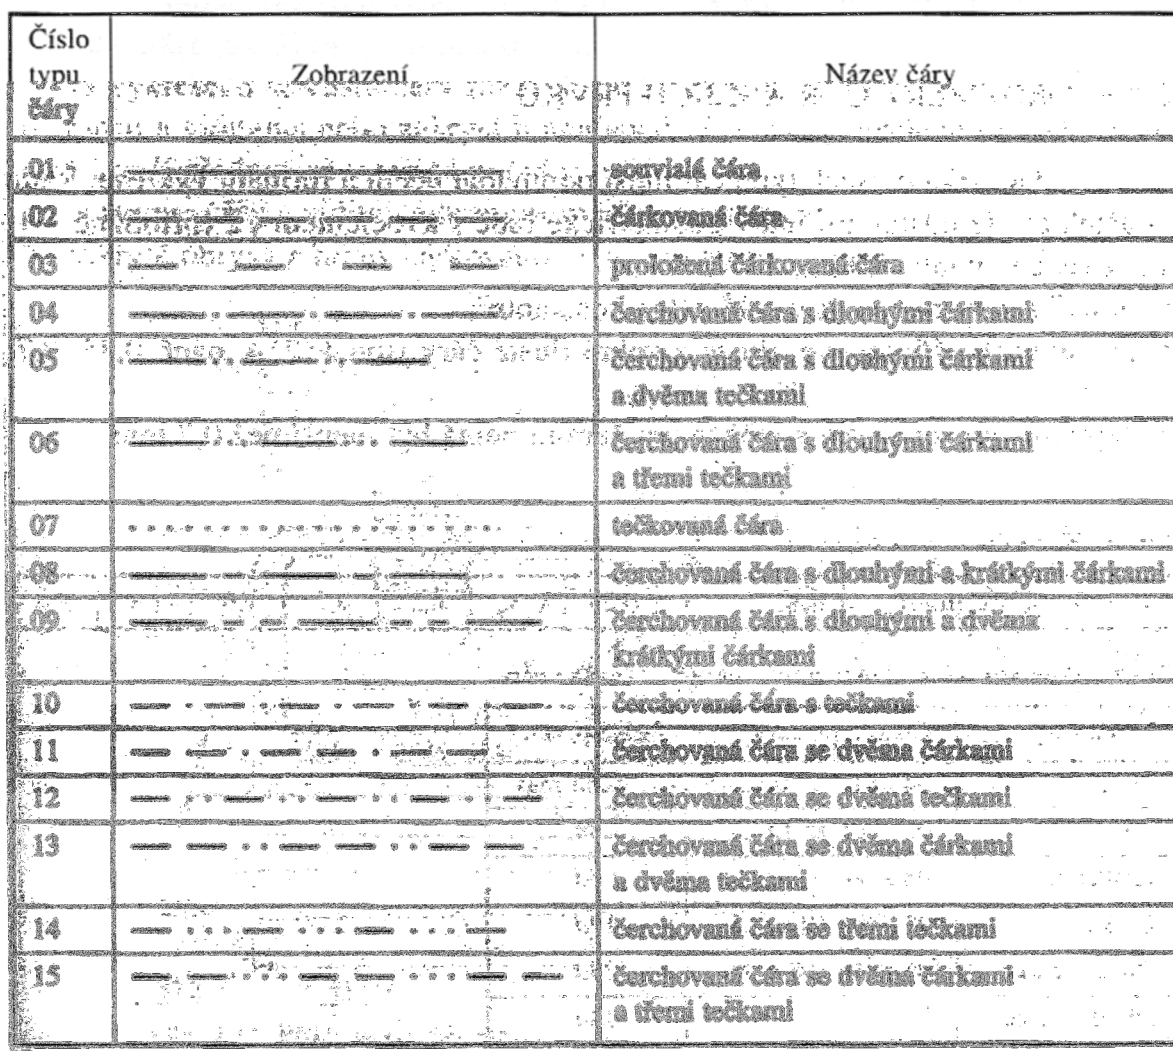 Číslo
typu
čáry
Zobrazení
Název čáry
01
souvislá čára
02
čárkovaná čára
03
proložená čárkovaná čára
04
čerchovaná čára s dlouhými čárkami
05
čerchovaná čára s dlouhými čárkami
a dvěma tečkami
06
čerchovaná čára s dlouhými čárkami
a třemi tečkami
07
tečkovaná čára
08
čerchovaná čára s dlouhými a krátkými čárkami
09
čerchovaná čára s dlouhými a dvěma
krátkými čárkami
10
čerchovaná čára s tečkami
11
čerchovaná čára se dvěma čárkami
12
čerchovaná čára se dvěma tečkami
13
čerchovaná čára se dvěma čárkami
a dvěma tečkami
14
čerchovaná čára se třemi tečkami
15
čerchovaná čára se dvěma čárkami
a třemi tečkami